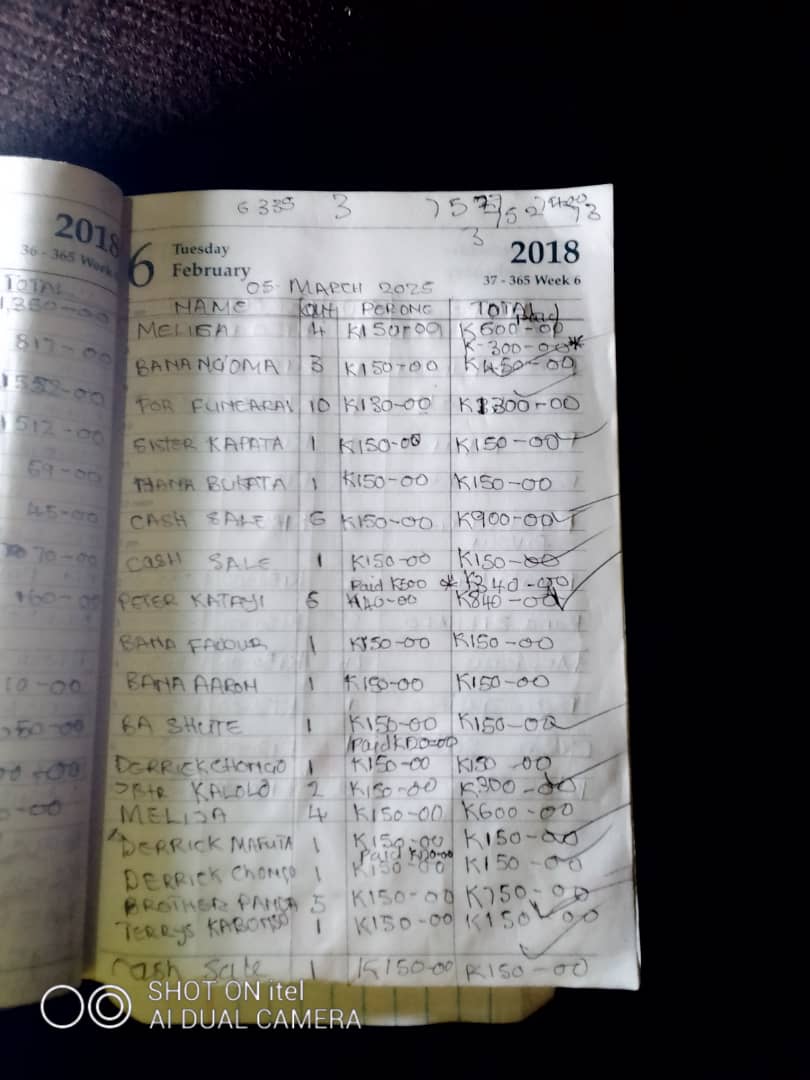 2018
36 - 365 Week
TOTAL
1,350-00
817-00
1552-00
1512-00
69-00
45-00
70-00
10-00
50-00
6335 3
3
6 Tuesday
February
2018
37 - 365 Week 6
05 MARCH 2025
NAME PER ONE TOTAL
Paid
MELISA 4 K150-00 K600-00
K-300-00*
BANA NG'OMA 3 K150-00 K450-00
FOR FUNEARAL 10 K130-00 K1300-00
SISTER KAPATA 1 K150-00 K150-00
BUKATA 1 K150-00 K150-00
CASH SALE 6 K150-00 K900-00
CASH SALE 1 K150-00 K150-00
Paid K500 * K340-00
PETER KATAYI 6 140-00 K840-00
BANA FAVOUR 1 K150-00 K150-00
BANA AARON 1 K150-00 K150-00
BA SHUTE 1 K150-00 K150-00
Paid
DERRICK CHONGO 1 K150-00 K150 00
KALOLO 2 K150-00 K300-00
MELISA 4 K150-00 K600-00
DERRICK MAFUTA 1 K150-00 K150-00
Paid
DERRICK CHONGO 1 K150-00 K150-00
BROTHER PANDA 5 K150-00 K750-00
TERRYS KABONSO 1 K150-00 K150-00
Cash Sale 1 K150-00 K150-00
SHOT ON itel
AI DUAL CAMERA